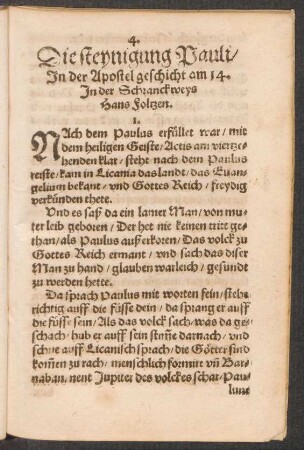 4.
Die steynigung Pauli/
In der Apostel geschicht am 14.
In der Schranckweys
Hans Foltzen.
1.
NAch dem Paulus erfüllet war/ mit
dem heiligen Geiste/ Actis am viertze-
henden klar/ stehe nach dem Paulus
reiste/ kam in Licania das landt/ das Euan-
gelium bekant/ vnd Gottes Reich/ freydig
verkünden thete.
Vnd es saß da ein lamer Man/ von mu-
ter leib geboren/ Der het nie keinen trit ge-
than/ als Paulus außerkoren/ Das volck zu
Gottes Reich ermant/ vnd sach das diser
Man zu hand/ glauben warleich/ gesundt
zu werden hette.
Da sprach Paulus mit worten fein/ stehe
richtig auff die füsse dein/ da sprang er auff
die füsse sein/ Als das volck sach/ was da ge-
schach/ hub er auff sein stim̃e darnach/ vnd
schrie auff Licanisch sprach/ die Götter sind
kom̃en zu rach/ menschlich formirt vñ Bar-
naban, nent Jupiter des volckes schar/ Pau-
lum